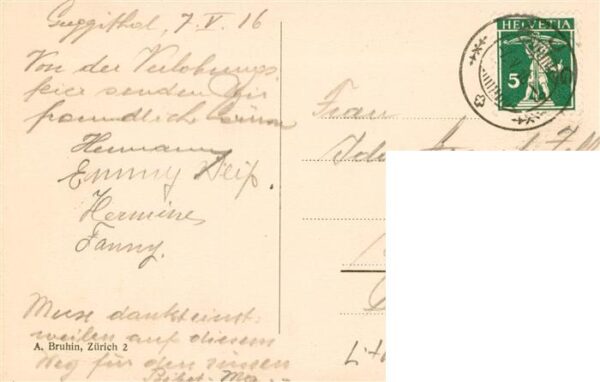 Guggithal, 7. V. 16
Von der Verlobungs
feier senden Dir
freundlich
Hermann
Emmy Weiß.
Hermine,
Fanny.
Muse dankt einst-
weilen auf diesem
Weg für den
A. Bruhin, Zürich 2
HELVETIA
5
Frau